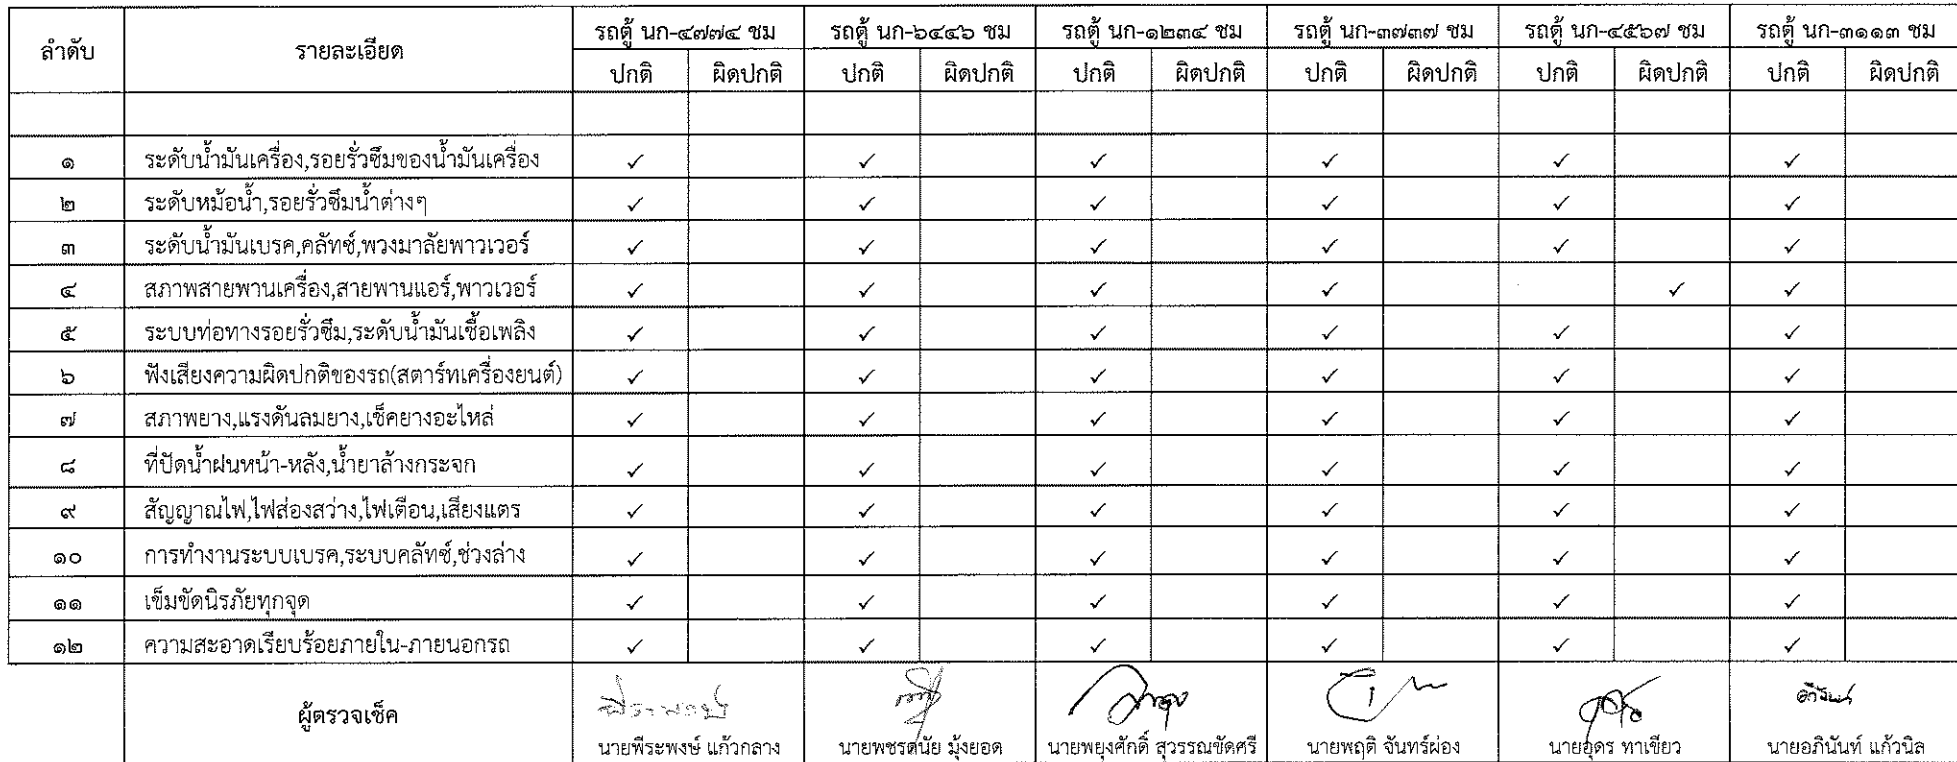 ลำดับ รายละเอียด รถตู้ นก-๔๗๗๔ ชม รถตู้ นก-๖๔๔๖ ชม รถตู้ นก-๑๒๓๔ ชม รถตู้ นก-๓๗๓๗ ชม รถตู้ นก-๔๕๖๗ ชม รถตู้ นก-๓๑๑๓ ชม
ปกติ ผิดปกติ ปกติ ผิดปกติ ปกติ ผิดปกติ ปกติ ผิดปกติ ปกติ ผิดปกติ ปกติ ผิดปกติ
๑ ระดับน้ำมันเครื่อง,รอยรั่วซึมของน้ำมันเครื่อง ✓ ✓ ✓ ✓ ✓ ✓
๒ ระดับหม้อน้ำ,รอยรั่วซึมน้ำต่างๆ ✓ ✓ ✓ ✓ ✓ ✓
๓ ระดับน้ำมันเบรค,คลัทซ์,พวงมาลัยพาวเวอร์ ✓ ✓ ✓ ✓ ✓ ✓
๔ สภาพสายพานเครื่อง,สายพานแอร์,พาวเวอร์ ✓ ✓ ✓ ✓ ✓ ✓
๕ ระบบท่อทางรอยรั่วซึม,ระดับน้ำมันเชื้อเพลิง ✓ ✓ ✓ ✓ ✓ ✓
๖ ฟังเสียงความผิดปกติของรถ(สตาร์ทเครื่องยนต์) ✓ ✓ ✓ ✓ ✓ ✓
๗ สภาพยาง,แรงดันลมยาง,เช็คยางอะไหล่ ✓ ✓ ✓ ✓ ✓ ✓
๘ ที่ปัดน้ำฝนหน้า-หลัง,น้ำยาล้างกระจก ✓ ✓ ✓ ✓ ✓ ✓
๙ สัญญาณไฟ,ไฟส่องสว่าง,ไฟเตือน,เสียงแตร ✓ ✓ ✓ ✓ ✓ ✓
๑๐ การทำงานระบบเบรค,ระบบคลัทซ์,ช่วงล่าง ✓ ✓ ✓ ✓ ✓ ✓
๑๑ เข็มขัดนิรภัยทุกจุด ✓ ✓ ✓ ✓ ✓ ✓
๑๒ ความสะอาดเรียบร้อยภายใน-ภายนอกรถ ✓ ✓ ✓ ✓ ✓ ✓
ผู้ตรวจเช็ค พีระพงษ์
นายพีระพงษ์ แก้วกลาง นายพชรดนัย มุ้งยอด นายพยุงศักดิ์ สุวรรณขัดศรี นายพฤติ จันทร์ผ่อง นายอุดร ทาเขียว นายอภินันท์ แก้วนิล